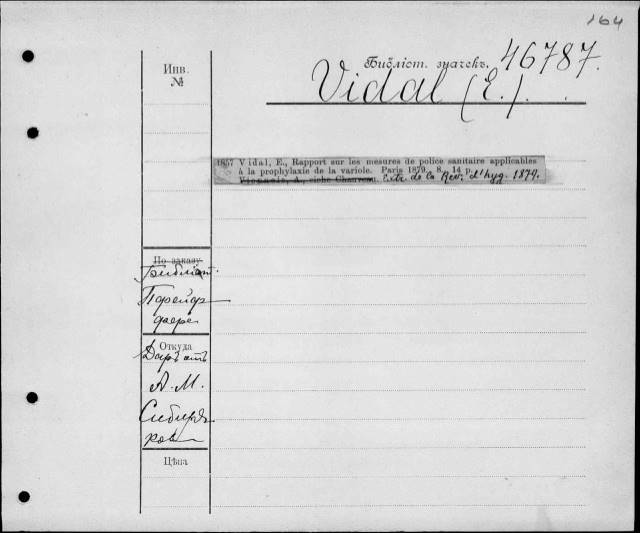 164
Библіот. значекъ. 46787.
Vidal (E.).
Инв.
№
1857 Vidal, E., Rapport sur les mesures de police sanitaire applicables
à la prophylaxie de la variole. Paris 1879. 8. 14 p.
Extr. de la Rev. d'hyg. 1879.
По заказу
Библіот.
Пфейф
фера
Откуда
Даръ отъ
А. М.
Сибиря
кова
Цѣна